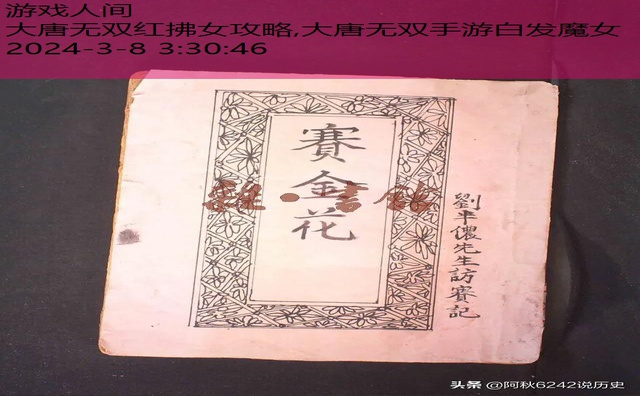 游戏人间
大唐无双红拂女攻略,大唐无双手游白发魔女
2024-3-8 3:30:46
賽金花
劉半儂先生訪賽記
头条 @阿秋6242说历史